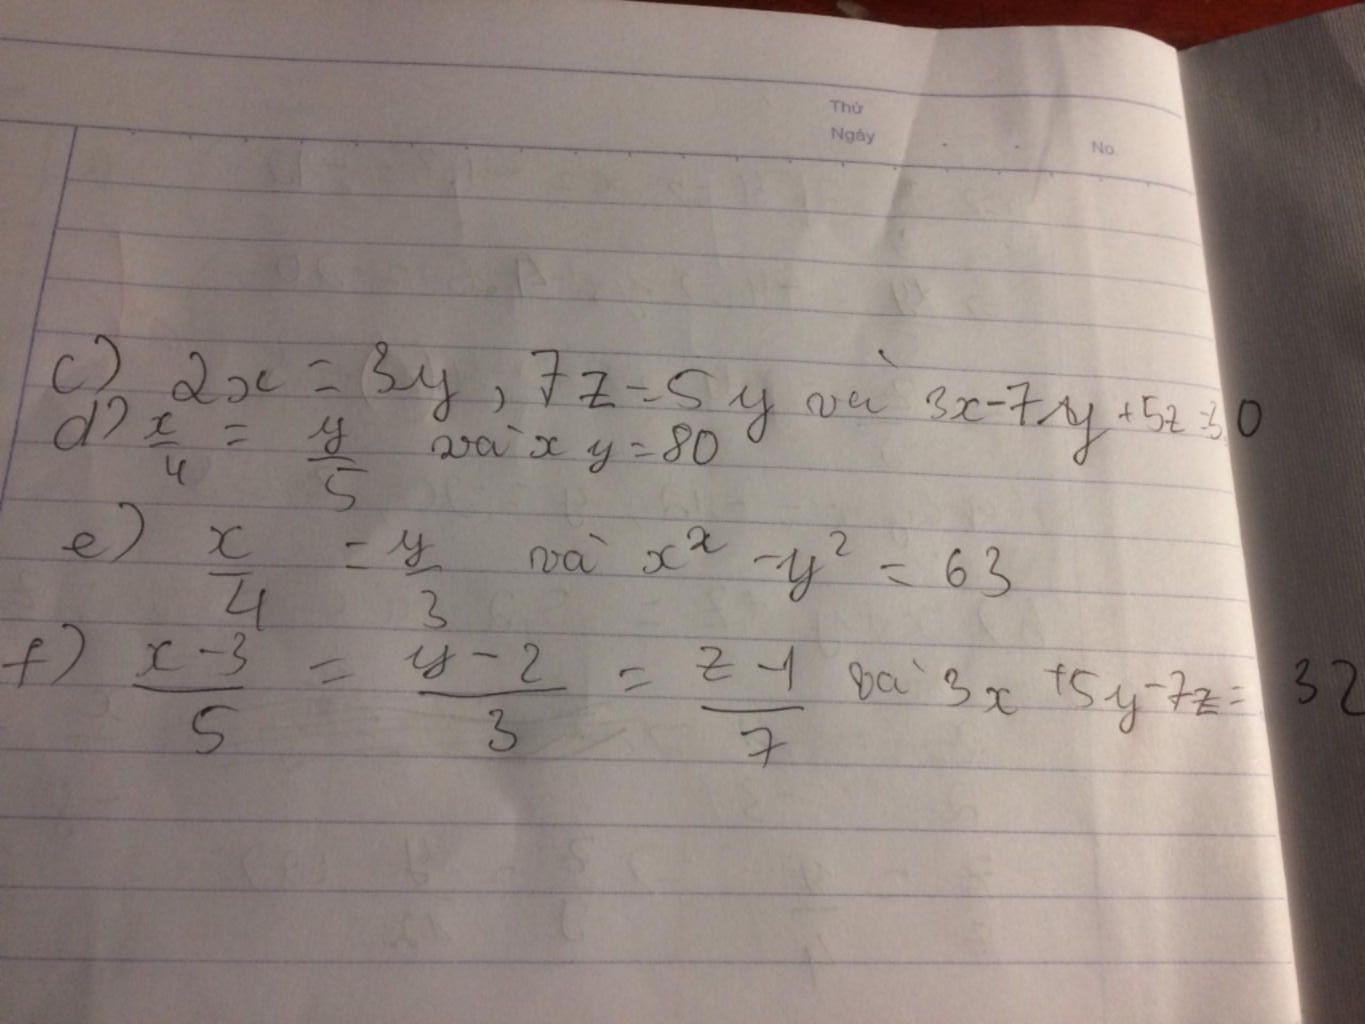 Thứ
Ngày . . No.
c) 2x = 3y, 7z = 5y và 3x - 7y + 5z = 30
d) x/4 = y/5 và xy = 80
e) x/4 = y/3 và x^x - y² = 63
f) x-3/5 = y-2/3 = z-1/7 và 3x + 5y - 7z = 32